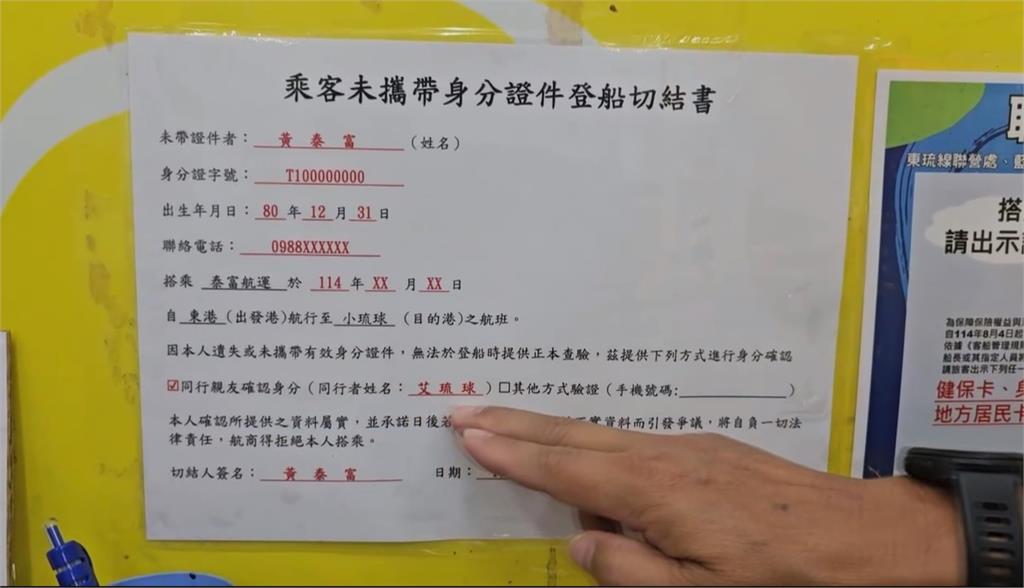 乘客未攜帶身分證件登船切結書
未帶證件者：黃 泰 富（姓名）
身分證字號：T100000000
出生年月日：80年12月31日
聯絡電話：0988XXXXXX
搭乘 泰富航運 於 114 年 XX 月 XX 日
自 東港（出發港）航行至 小琉球 （目的港）之航班。
因本人遺失或未攜帶有效身分證件，無法於登船時提供正本查驗，茲提供下列方式進行身分確認
☑同行親友確認身分（同行者姓名： 艾 琉 球 ）☐其他方式驗證（手機號碼:　　　　）
本人確認所提供之資料屬實，並承諾日後若 實資料而引發爭議，將自負一切法
律責任，航商得拒絕本人搭乘。
切結人簽名： 黃 泰 富　日期：
東琉線聯營處、藍
搭
請出示
為保障保險權益與
自114年8月4日起
依據《客船管理規則
船長或其指定人員
請旅客出示下列任一
健保卡、身
地方居民卡